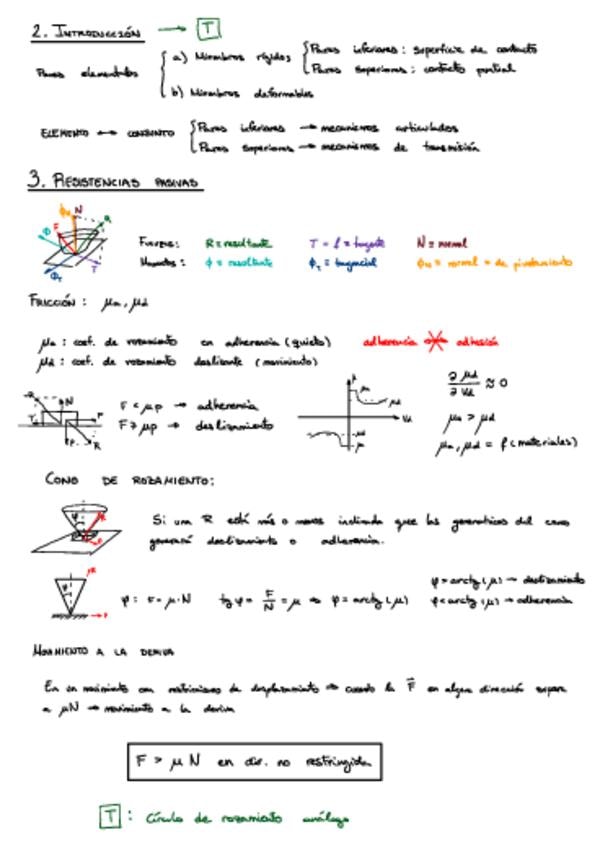 2. INTRODUCCIÓN → T
Pares elementales
a) Miembros rígidos
Pares inferiores: superficie de contacto
Pares superiores: contacto puntual
b) Miembros deformables
ELEMENTO ↔ CONJUNTO
Pares inferiores → mecanismos articulados
Pares superiores → mecanismos de transmisión
3. RESISTENCIAS PASIVAS
Fuerzas: R = resultante T = f = tangente N = normal
Momentos: ϕ = resultante ϕT = tangencial ϕN = normal = de pivotamiento
FRICCIÓN: μa, μd
μa: coef. de rozamiento en adherencia (quieto) adherencia adhesión
μd: coef. de rozamiento deslizante (movimiento)
F < μp → adherencia
F > μp → deslizamiento
∂μd / ∂Vd ≈ 0
μa > μd
μa, μd = f(materiales)
CONO DE ROZAMIENTO:
Si una R está más o menos inclinada que las generatrices del cono
generará deslizamiento o adherencia.
φ: F = μ·N tg φ = F/N = μ ⇒ φ = arctg(μ)
φ > arctg(μ) → deslizamiento
φ < arctg(μ) → adherencia
MOVIMIENTO A LA DERIVA
En un movimiento con restricciones de desplazamiento ⇒ cuando la F en alguna dirección supera
a μN → movimiento a la deriva
F > μN en dir. no restringida
T: Círculo de rozamiento análogo